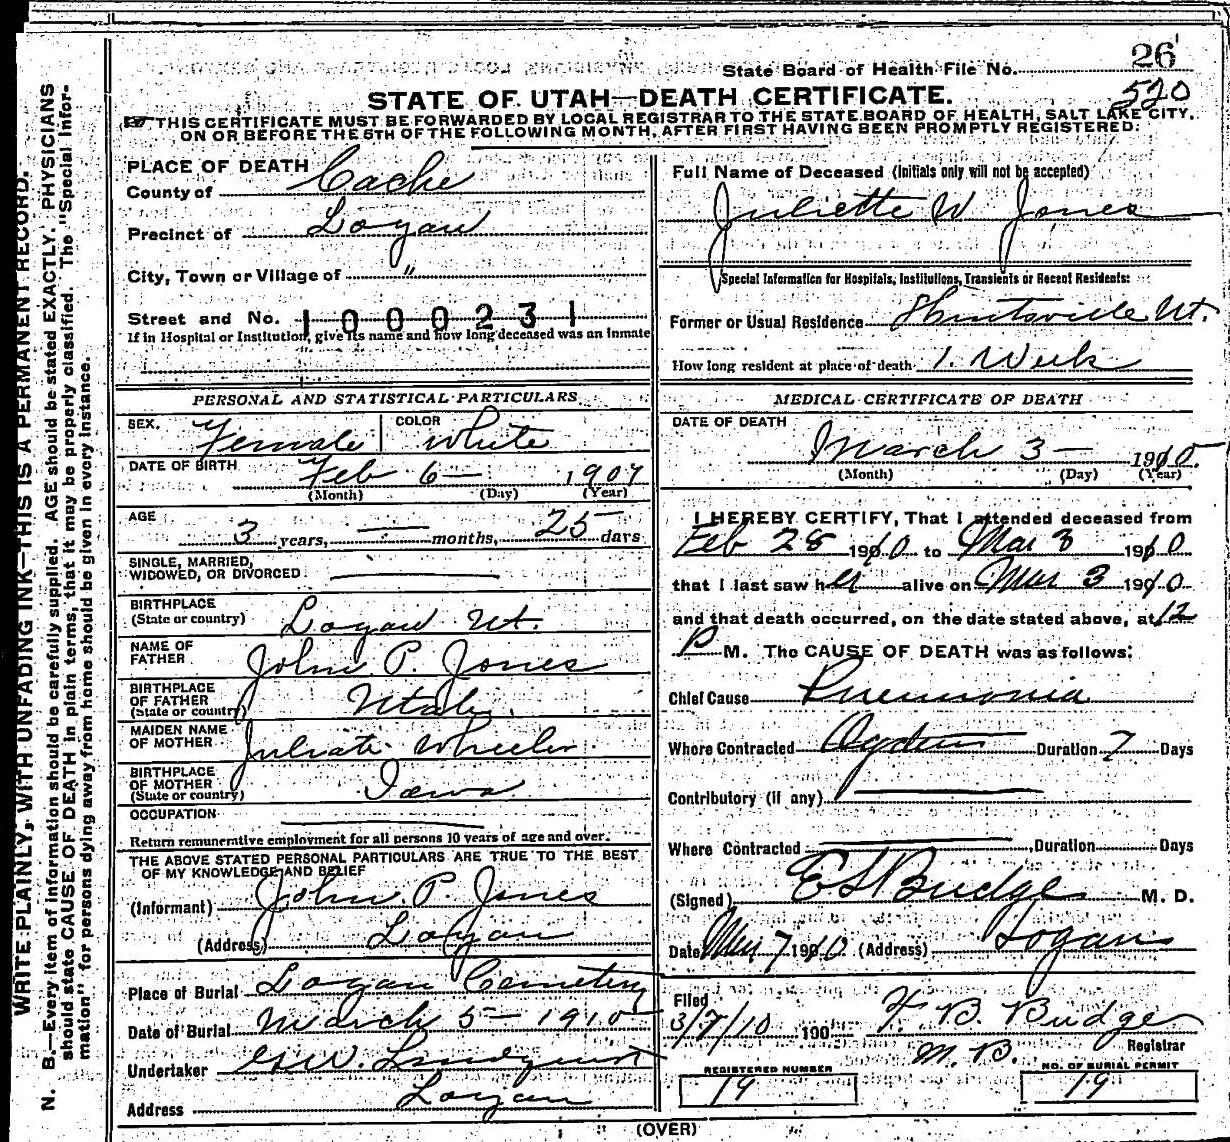 State Board of Health File No. 26
520
STATE OF UTAH—DEATH CERTIFICATE.
THIS CERTIFICATE MUST BE FORWARDED BY LOCAL REGISTRAR TO THE STATE BOARD OF HEALTH, SALT LAKE CITY,
ON OR BEFORE THE 5TH OF THE FOLLOWING MONTH, AFTER FIRST HAVING BEEN PROMPTLY REGISTERED:
WRITE PLAINLY, WITH UNFADING INK—THIS IS A PERMANENT RECORD.
N. B.—Every item of information should be carefully supplied. AGE should be stated EXACTLY. PHYSICIANS
should state CAUSE OF DEATH in plain terms, that it may be properly classified. The "Special Infor-
mation" for persons dying away from home should be given in every instance.
PLACE OF DEATH
County of Cache
Precinct of Logan
City, Town or Village of "
Street and No. 1000231
If in Hospital or Institution, give its name and how long deceased was an inmate
PERSONAL AND STATISTICAL PARTICULARS
SEX. Female COLOR White
DATE OF BIRTH Feb 6— 1907
(Month) (Day) (Year)
AGE
3 years, — months, 25 days
SINGLE, MARRIED,
WIDOWED, OR DIVORCED —
BIRTHPLACE
(State or country) Logan Ut.
NAME OF
FATHER John P. Jones
BIRTHPLACE
OF FATHER
(State or country) Utah.
MAIDEN NAME
OF MOTHER Juliate Wheeler
BIRTHPLACE
OF MOTHER
(State or country) Iowa
OCCUPATION —
Return remunerative employment for all persons 10 years of age and over.
THE ABOVE STATED PERSONAL PARTICULARS ARE TRUE TO THE BEST
OF MY KNOWLEDGE AND BELIEF
(Informant) John P. Jones
(Address) Logan
Place of Burial Logan Cemetery
Date of Burial March 5— 1910
Undertaker W. Lindquist
Address Logan
Full Name of Deceased (Initials only will not be accepted)
Juliette W Jones
Special Information for Hospitals, Institutions, Transients or Recent Residents:
Former or Usual Residence Huntsville Ut.
How long resident at place of death 1. Week
MEDICAL CERTIFICATE OF DEATH
DATE OF DEATH
March 3— 1910.
(Month) (Day) (Year)
I HEREBY CERTIFY, That I attended deceased from
Feb 28 1910 to Mar 3 1910
that I last saw her alive on Mar 3 1910
and that death occurred, on the date stated above, at 12
P M. The CAUSE OF DEATH was as follows:
Chief Cause Pneumonia
Where Contracted Ogden Duration 7 Days
Contributory (if any) —
Where Contracted — Duration Days
(Signed) E S Budge M. D.
Date Mar 7 1910 (Address) Logan
Filed
3/7/10 190 F. B. Budge
M. B. Registrar
REGISTERED NUMBER
19
NO. OF BURIAL PERMIT
19
(OVER)